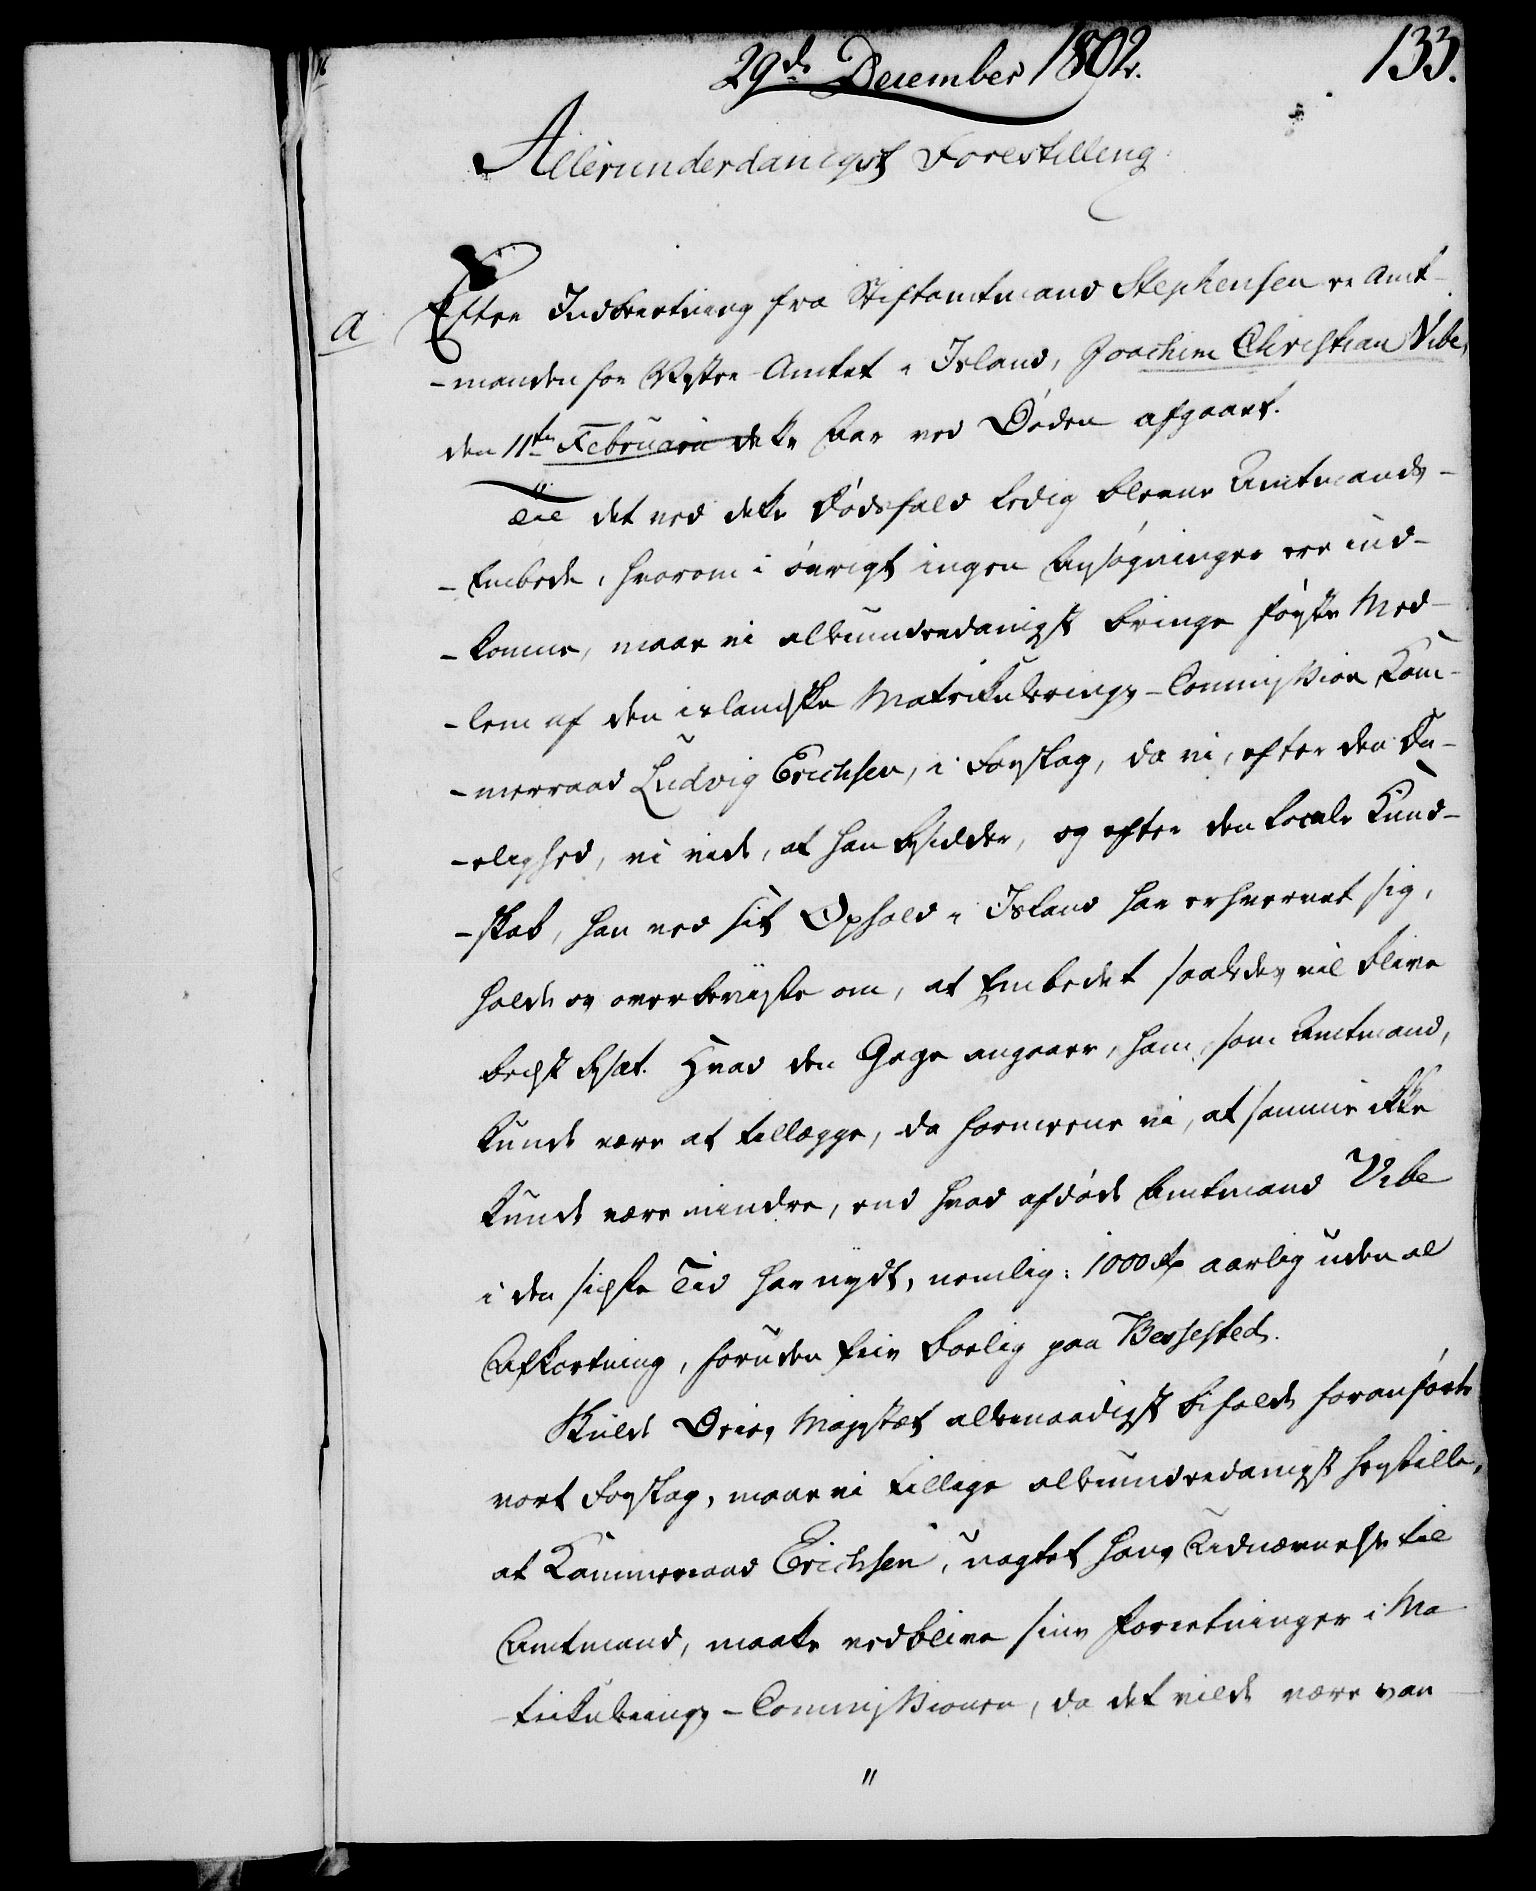 29de December 1802.
133.
Allerunderdanigst Forestilling.
a
Efter Indberetning fra Stiftamtmand Stephensen er Amt-
-manden for Vester-Amtet i Island, Joachim Christian Vibe,
den 11te Februarii dette Aar ved Døden afgaaet.
Til det ved dette Dødsfald ledig blevne Amtmands-
-Embede, hvorom i øvrigt ingen Ansøgninger ere ind-
-komne, maae vi allerunderdanigst bringe første Med-
-lem af den islandske Matrikulerings-Commission Kam-
-merraad Ludvig Erichsen, i Forslag, da vi, efter den Du-
-elighed, vi vide, at han besidder, og efter den locale Kund-
-skab, han ved sit Ophold i Island har erhvervet sig,
holde os overbeviiste om, at Embedet saaledes vil blive
bedst besat. Hvad den Gage angaaer, ham, som Amtmand,
kunde være at tillægge, da formeene vi, at samme ikke
kunde være mindre, end hvad afdøde Amtmand Vibe
i den sidste Tid har nydt, nemlig: 1000 Rd aarlig uden al
Afkortning, foruden frie Bolig paa Bessested.
Skulde Deres Majestæt allernaadigst bifalde foranførte
vort Forslag, maae vi tillige allerunderdanigst henstille,
at Kammerraad Erichsen, uagtet hans Udnævnelse til
Amtmand, maatte vedblive sine Forretninger i Ma-
-trikulerings-Commissionen, da det vilde være van-
"